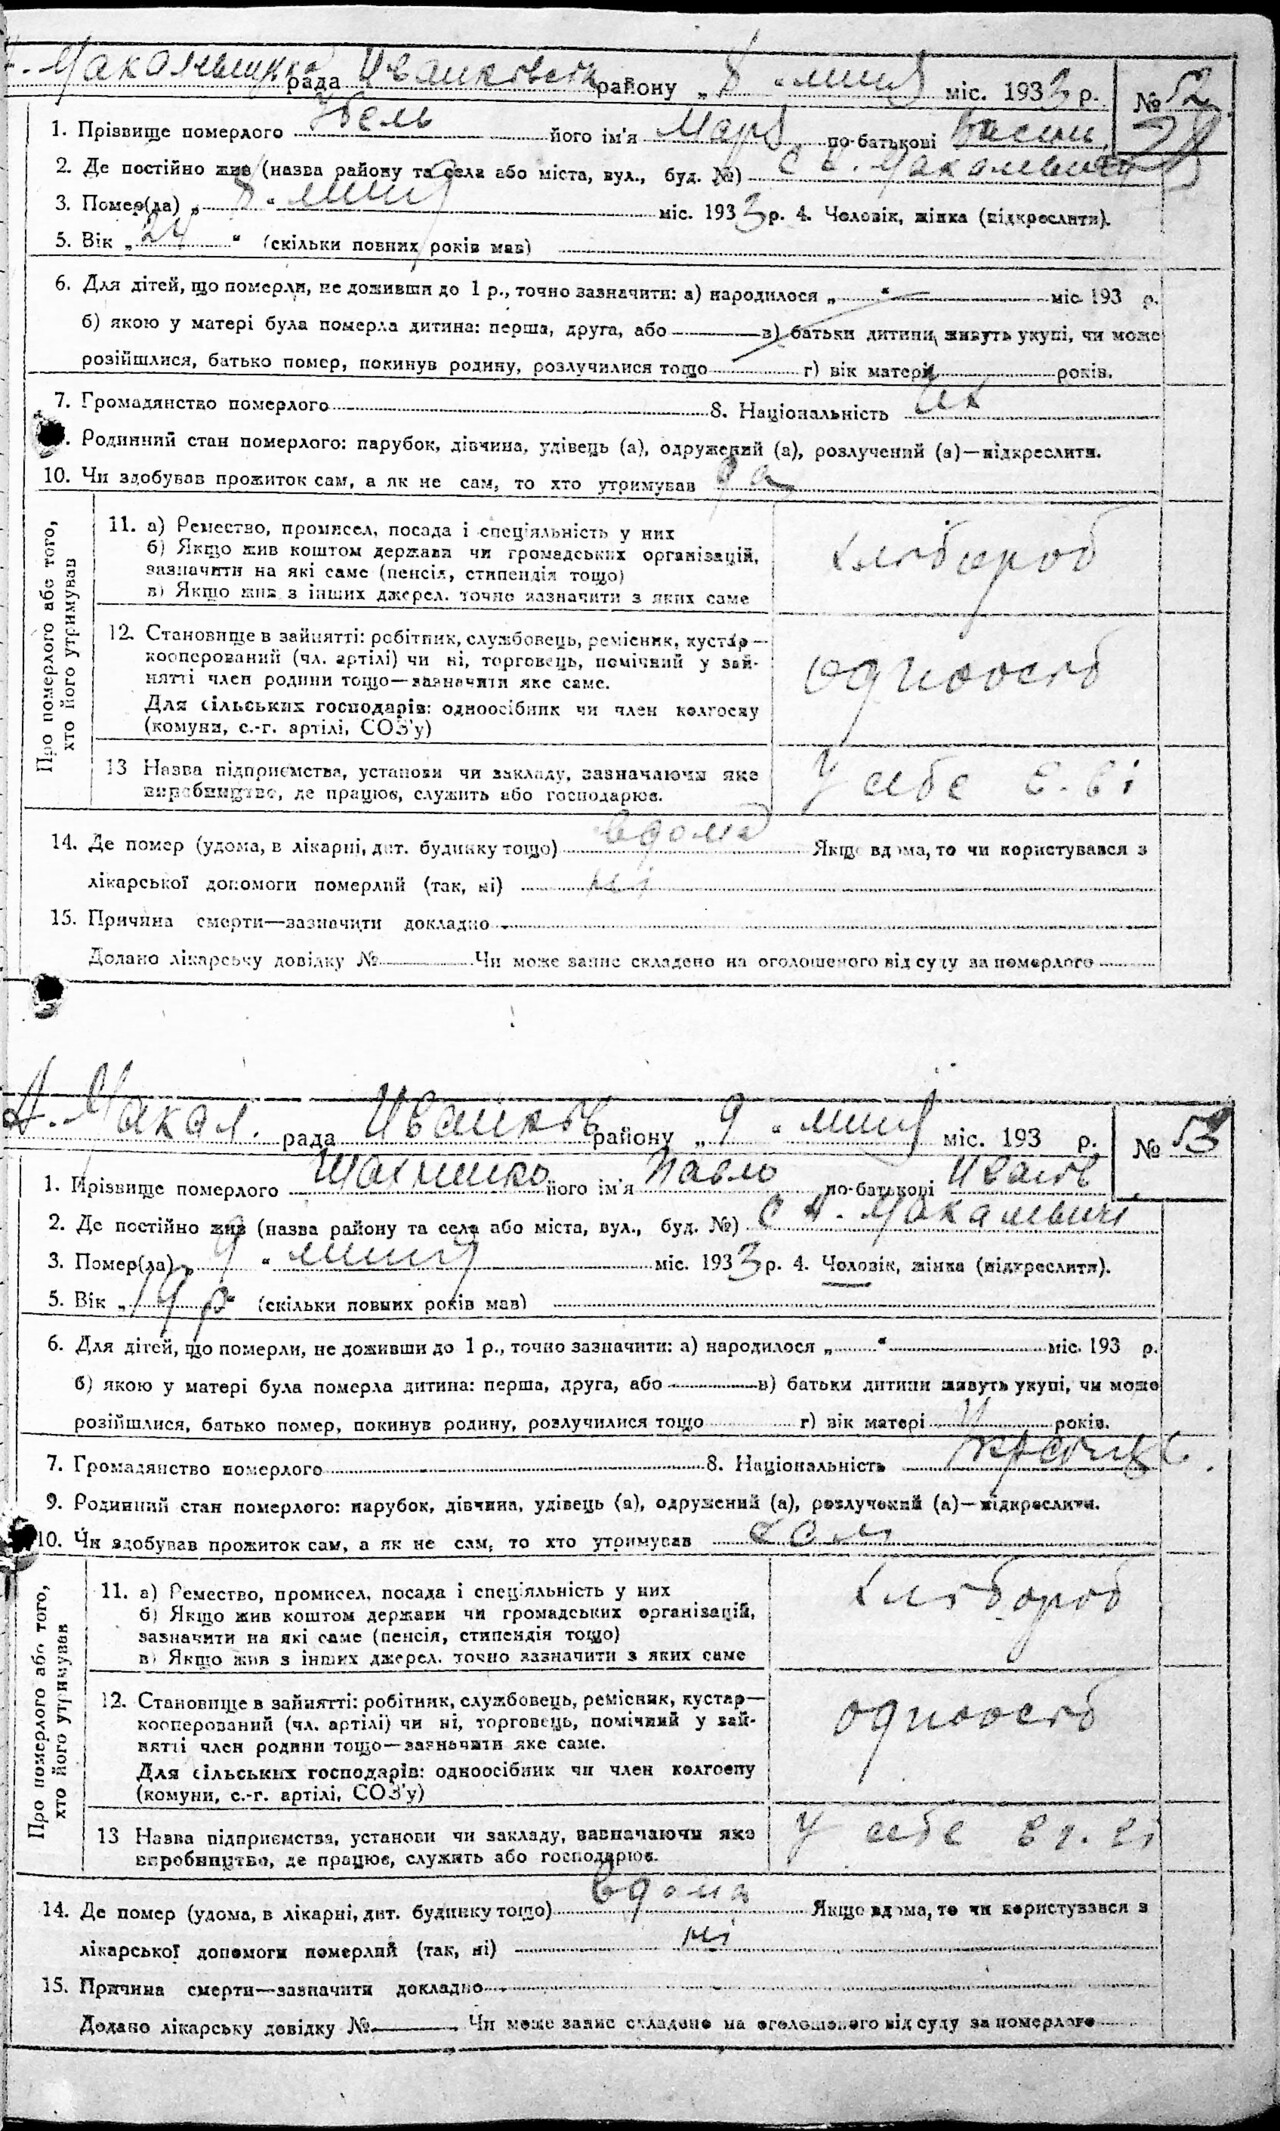 рада Иванковск району „ 8 “ липня міс. 1933 р. № 52
1. Прізвище померлого його ім'я по-батькові
2. Де постійно жив (назва району та села або міста, вул., буд. №) С
3. Помер(ла) „ 8 “ липня міс. 1933 р. 4. Чоловік, жінка (підкреслити).
5. Вік „ 24 “ (скільки повних років мав)
6. Для дітей, що померли, не доживши до 1 р., точно зазначити: а) народилося „ “ міс. 193 р.
б) якою у матері була померла дитина: перша, друга, або в) батьки дитини живуть укупі, чи може
розійшлися, батько помер, покинув родину, розлучилися тощо г) вік матері років.
7. Громадянство померлого 8. Національність
Родинний стан померлого: парубок, дівчина, удівець (а), одружений (а), розлучений (а)—підкреслити.
10. Чи здобував прожиток сам, а як не сам, то хто утримував
Про померлого або того,
хто його утримував
11. а) Ремество, промисел, посада і спеціяльність у них
б) Якщо жив коштом держави чи громадських організацій,
зазначити на які саме (пенсія, стипендія тощо)
в) Якщо жив з інших джерел, точно зазначити з яких саме
хлібороб
12. Становище в зайнятті: робітник, службовець, ремісник, кустар—
кооперований (чл. артілі) чи ні, торговець, помічний у зай-
нятті член родини тощо—зазначити яке саме.
Для сільських господарів: одноосібник чи член колгоспу
(комуни, с.-г. артілі, СОЗ'у)
одноосіб
13 Назва підприємства, установи чи закладу, зазначаючи яке
виробництво, де працює, служить або господарює.
У себе
14. Де помер (удома, в лікарні, дит. будинку тощо) вдома Якщо вдома, то чи користувався з
лікарської допомоги померлий (так, ні) ні
15. Причина смерти—зазначити докладно
Додано лікарську довідку № Чи може запис складено на оголошеного від суду за померлого
Макал. рада Иванков району „ 9 “ липня міс. 193 р. № 53
1. Прізвище померлого його ім'я Павло по-батькові Иванов
2. Де постійно жив (назва району та села або міста, вул., буд. №) С А. Макалевичі
3. Помер(ла) „ 9 “ липня міс. 1933 р. 4. Чоловік, жінка (підкреслити).
5. Вік „ 19 р “ (скільки повних років мав)
6. Для дітей, що померли, не доживши до 1 р., точно зазначити: а) народилося „ “ міс. 193 р.
б) якою у матері була померла дитина: перша, друга, або в) батьки дитини живуть укупі, чи може
розійшлися, батько помер, покинув родину, розлучилися тощо г) вік матері років.
7. Громадянство померлого 8. Національність
9. Родинний стан померлого: парубок, дівчина, удівець (а), одружений (а), розлучений (а)—підкреслити.
10. Чи здобував прожиток сам, а як не сам, то хто утримував сам
Про померлого або того,
хто його утримував
11. а) Ремество, промисел, посада і спеціяльність у них
б) Якщо жив коштом держави чи громадських організацій,
зазначити на які саме (пенсія, стипендія тощо)
в) Якщо жив з інших джерел, точно зазначити з яких саме
хлібороб
12. Становище в зайнятті: робітник, службовець, ремісник, кустар—
кооперований (чл. артілі) чи ні, торговець, помічний у зай-
нятті член родини тощо—зазначити яке саме.
Для сільських господарів: одноосібник чи член колгоспу
(комуни, с.-г. артілі, СОЗ'у)
одноосіб
13 Назва підприємства, установи чи закладу, зазначаючи яке
виробництво, де працює, служить або господарює.
У себе
14. Де помер (удома, в лікарні, дит. будинку тощо) вдома Якщо вдома, то чи користувався з
лікарської допомоги померлий (так, ні) ні
15. Причина смерти—зазначити докладно
Додано лікарську довідку № Чи може запис складено на оголошеного від суду за померлого